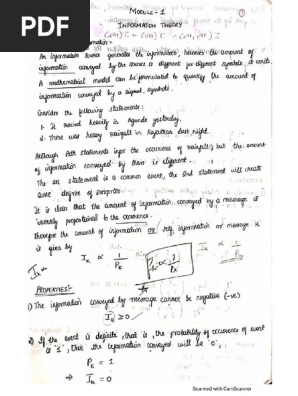 PDF
MODULE - 1
1
INFORMATION THEORY
An information source generates the information, however the amount of
information conveyed by the source is different for different symbols, it emits.
A mathematical model can be formulated to quantify the amount of
information conveyed by a signal, symbols.
Consider the following statements:
1. It rained heavily in yesterday.
2. There was heavy rainfall in Rajasthan last night.
Although both statements the occurence of rainfall, but the amount
of information conveyed by them is different.
The 1st statement is a common event, the 2nd statement will create
some degree of surprise.
It is clear that the amount of information conveyed by a message is
inversely proportional to the occurence.
Therefore the amount of information or self information or message K
is given by
I_K ∝ 1/P_K
I_K ∝ 1/P_K
I_K ∝
PROPERTIES:-
1) The information conveyed by message cannot be negative (-ve)
I_K ≥ 0
2) If the event is definite, that is, the probability of occurence of event
is '1', then the information conveyed will be '0'.
P_K = 1
⇒ I_K = 0
Scanned with CamScanner